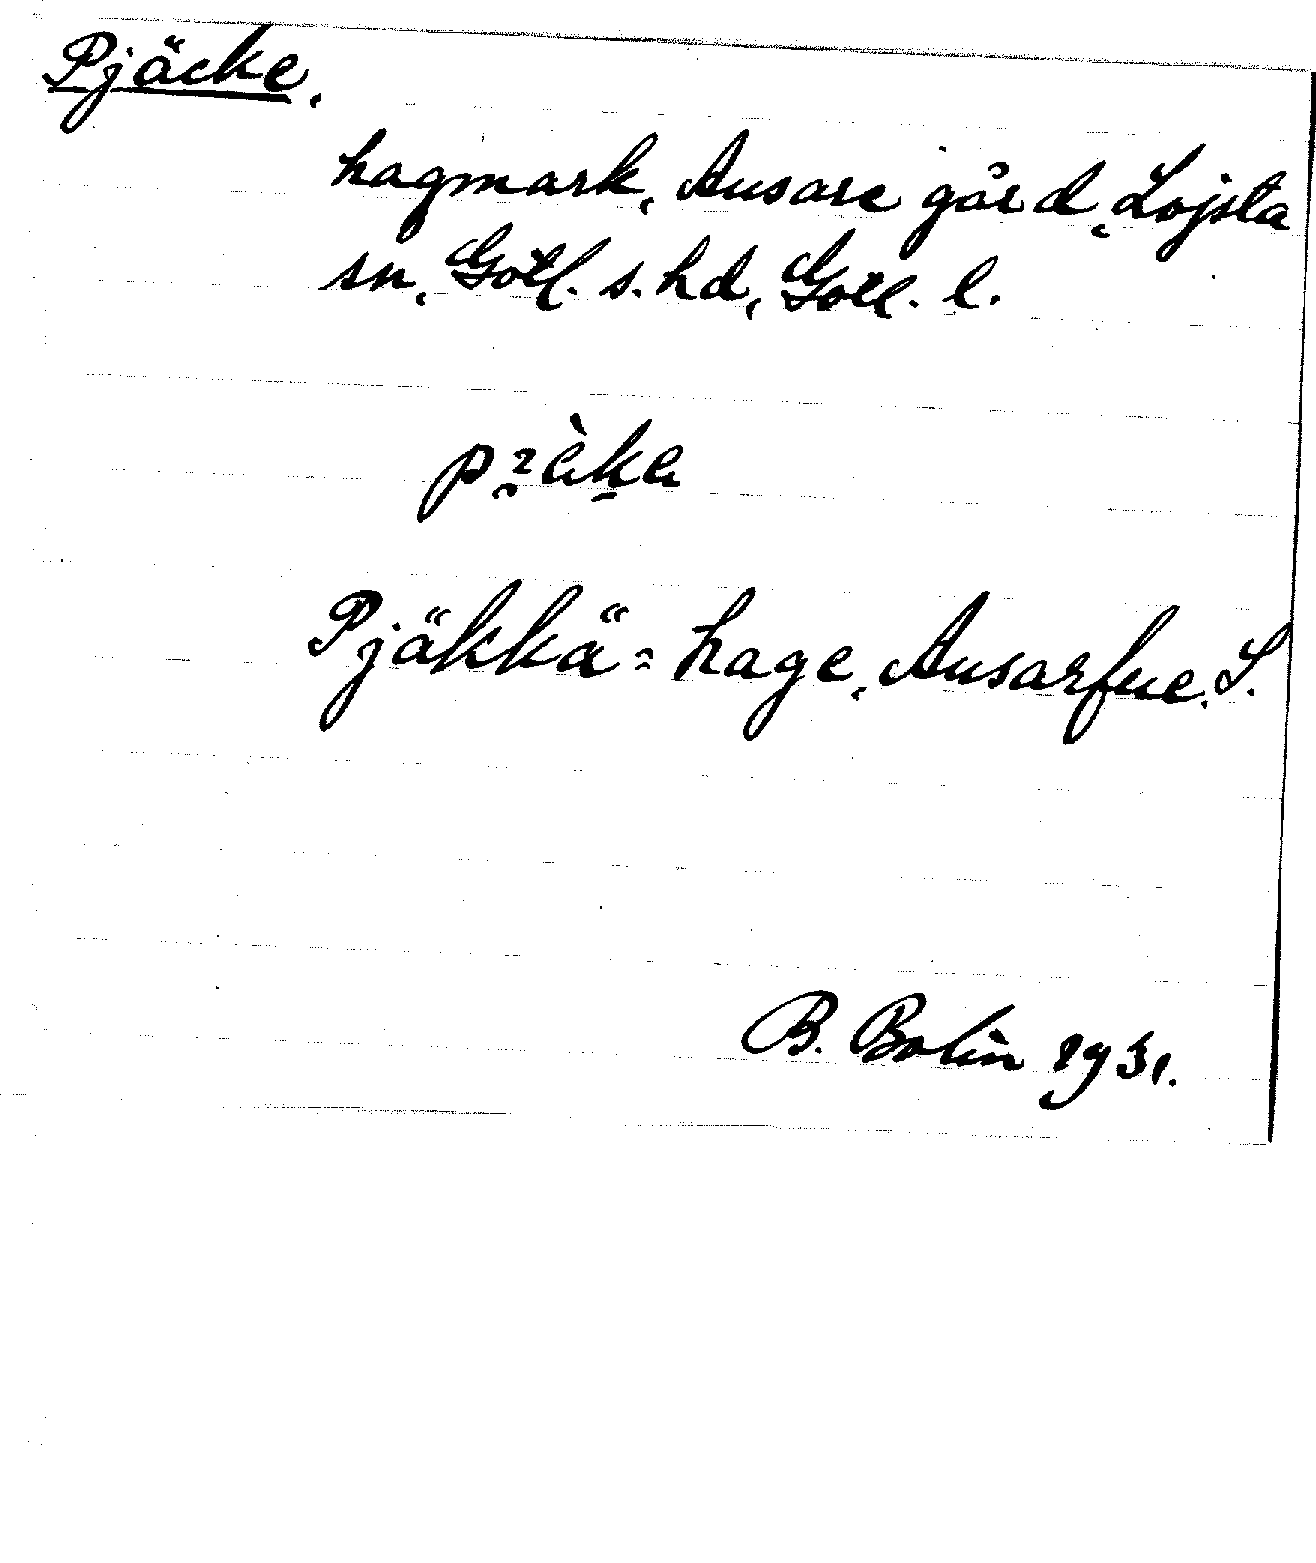 Pjäcke,
hagmark, Ausare gård, Lojsta
sn, Gotl. s. hd, Gotl. l.
Pjäkkä = hage, Ausarfue. L.
B. Bolin 1931.